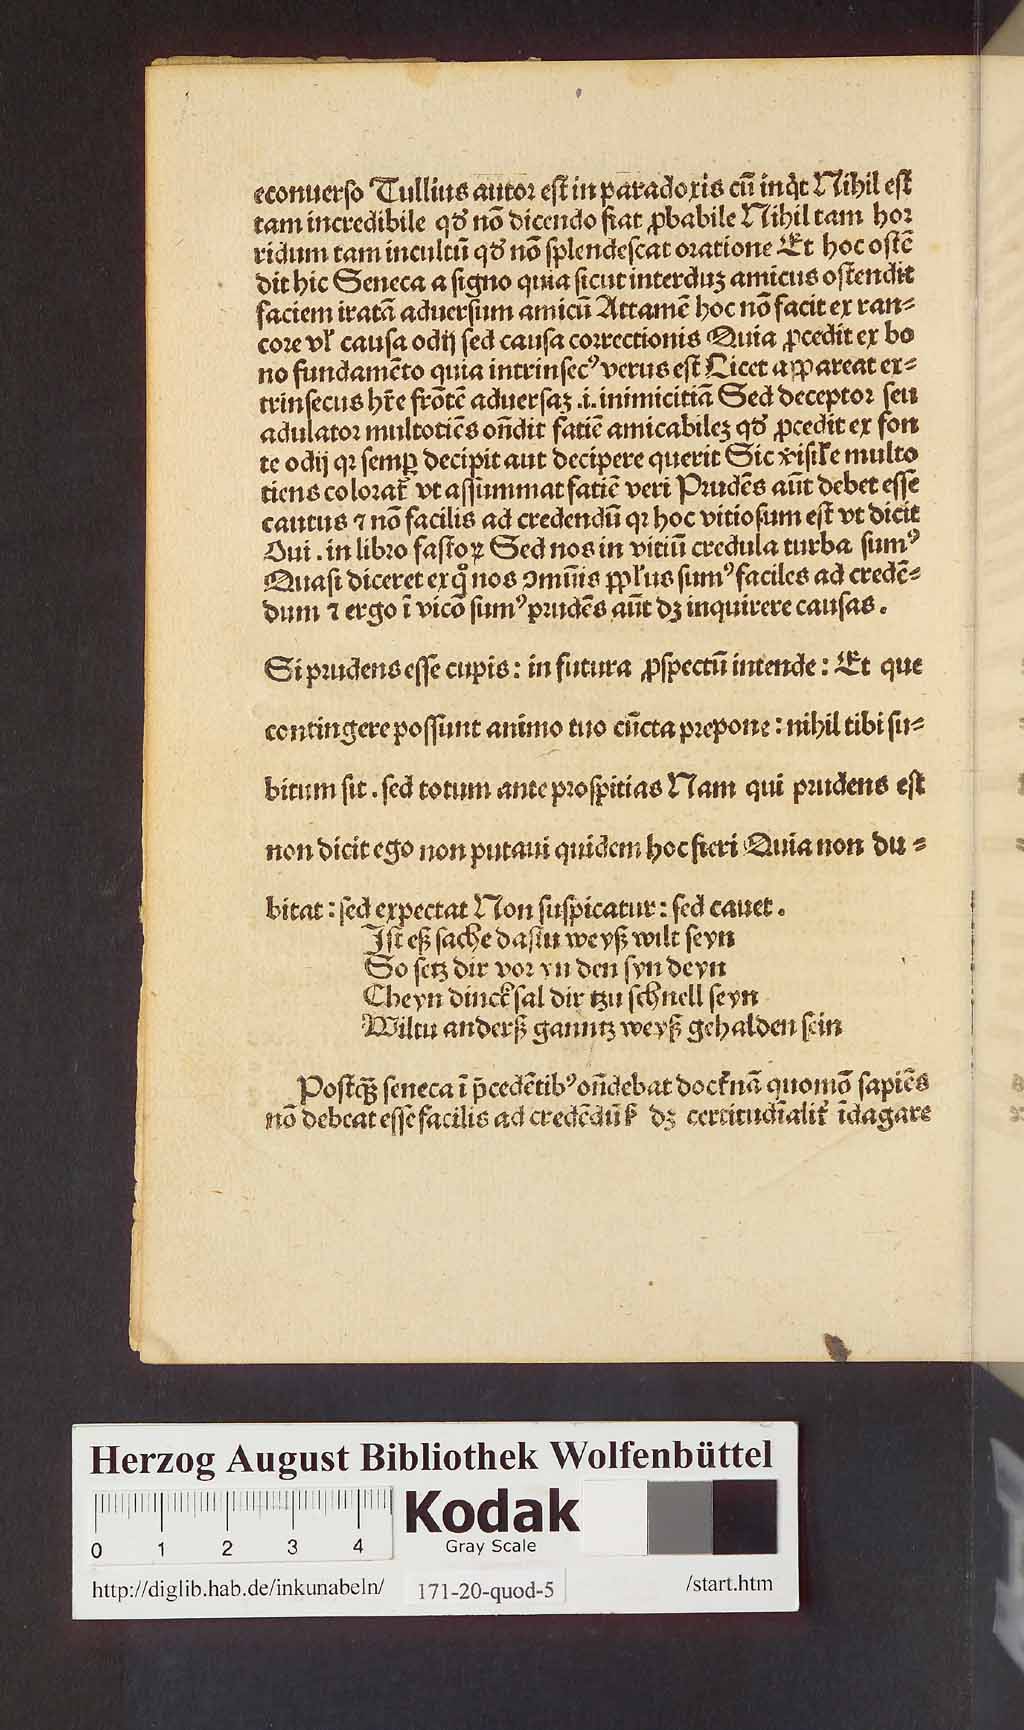 econuerso Tullius autor est in paradoxis cū inq̇t Nihil est
tam incredibile qd' nō dicendo fiat ꝓbabile Nihil tam hor
ridum tam incultū qd' nō splendescat oratione Et hoc ostē
dit hic Seneca a signo quia sicut interduꝫ amicus ostendit
faciem iratā aduersum amicū Attamē hoc nō facit ex ran⸗
core vl' causa odij sed causa correctionis Quia ꝓcedit ex bo
no fundamēto quia intrinsecꝰ verus est Licet appareat ex⸗
trinsecus hr̄e frōtē aduersaꝫ .i. inimicitiā Sed deceptor seu
adulator multotiēs oñdit fatiē amicabileꝫ qd' ꝓcedit ex fon
te odij qꝛ semꝑ decipit aut decipere querit Sic multo
tiens colorat᷑ vt assummat fatiē veri Prudēs aūt debet esse
cautus ⁊ nō facilis ad credendū qꝛ hoc vitiosum est vt dicit
Oui . in libro fastoꝝ Sed nos in vitiū credula turba sumꝰ
Quasi diceret ex qͦ nos ꝯmūis ppl'us sumꝰ faciles ad credē⸗
dum ⁊ ergo ī vicō sumꝰ prudēs aūt dꝫ inquirere causas .
Si prudens esse cupis : in futura ꝓspectū intende : Et que
contingere possunt animo tuo cūcta prepone : nihil tibi su⸗
bitum sit . sed totum ante prospitias Nam qui prudens est
non dicit ego non putaui quidem hoc fieri Quia non du⸗
bitat : sed expectat Non suspicatur : sed cauet .
Ist eß sache dastu weyß wilt seyn
So setz dir vor yn den syn deyn
Cheyn dinck sal dir tzu schnell seyn
Wiltu anderß ganntz weyß gehalden sein
Postꝙ̄ seneca ī p̄cedētibꝰ oñdebat doct'nā quomō sapiēs
nō debeat esse facilis ad credēdū dꝫ certitudīalit' īdagare
Herzog August Bibliothek Wolfenbüttel
0 1 2 3 4
Kodak
Gray Scale
http://diglib.hab.de/inkunabeln/ 171-20-quod-5 /start.htm